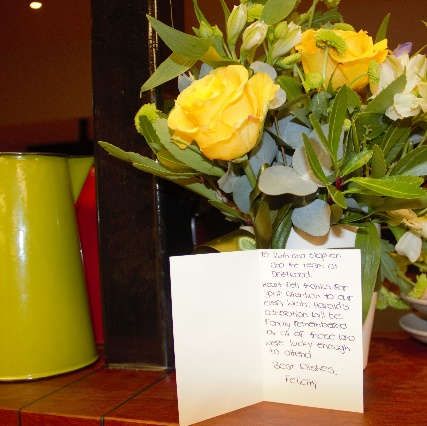 To Ruth and Stephen
and the team at
Driftwood.
Heart felt thanks for
your attention to our
every wish. Harold's
celebration will be
fondly remembered
by all of those who
were lucky enough
to attend.
Best Wishes,
Felicity